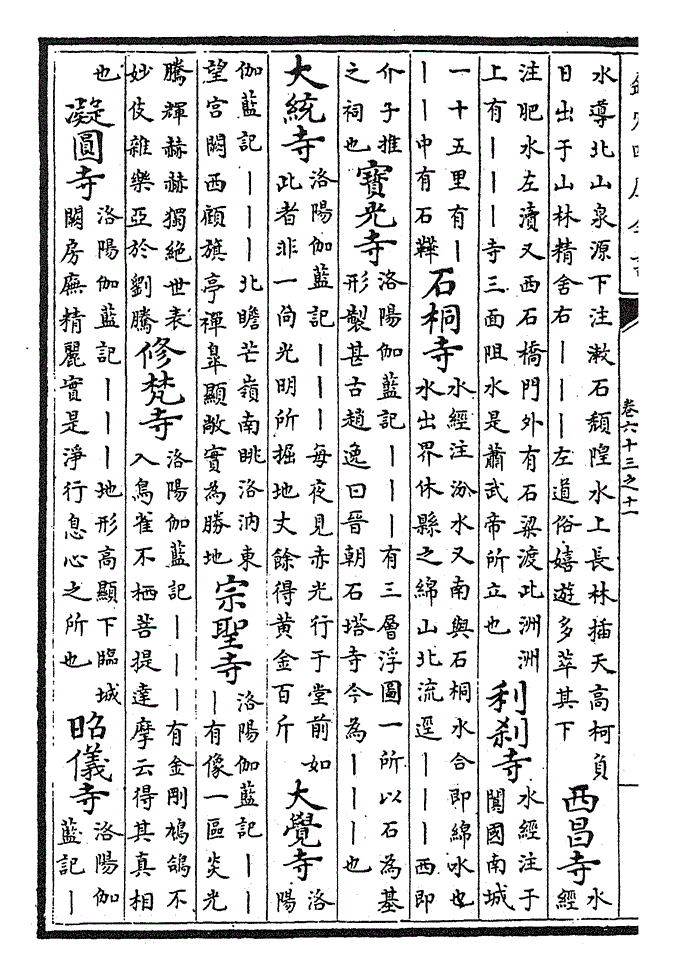 欽定四庫全書
卷六十三之十一
水導北山泉源下注漱石頹隍水上長林插天高柯負
日出于山林精舍右｜｜｜左道俗嬉遊多萃其下
西昌寺
水
經
注肥水左瀆又西石橋門外有石梁渡此洲洲
上有｜｜｜寺三面阻水是蕭武帝所立也
利刹寺
水經注于
闐國南城
一十五里有｜
｜｜中有石鞾
石桐寺
水經注汾水又南與石桐水合即綿水也
水出界休縣之綿山北流逕｜｜｜西即
介子推
之祠也
寶光寺
洛陽伽藍記｜｜｜有三層浮圖一所以石為基
形製甚古趙逸曰晉朝石塔寺今為｜｜｜也
大統寺
洛陽伽藍記｜｜｜每夜見赤光行于堂前如
此者非一向光明所掘地丈餘得黄金百斤
大覺寺
洛
陽
伽藍記｜｜｜北瞻芒嶺南眺洛汭東
望宮闕西顧旗亭禪臯顯敞實為勝地
宗聖寺
洛陽伽藍記｜｜
｜有像一區炎光
騰輝赫赫獨絕世表
妙伎雜樂亞於劉騰
修梵寺
洛陽伽藍記｜｜｜有金剛鳩鴿不
入鳥雀不栖菩提達摩云得其真相
也
凝圓寺
洛陽伽藍記｜｜｜地形高顯下臨城
闕房廡精麗實是淨行息心之所也
昭儀寺
洛陽伽
藍記｜